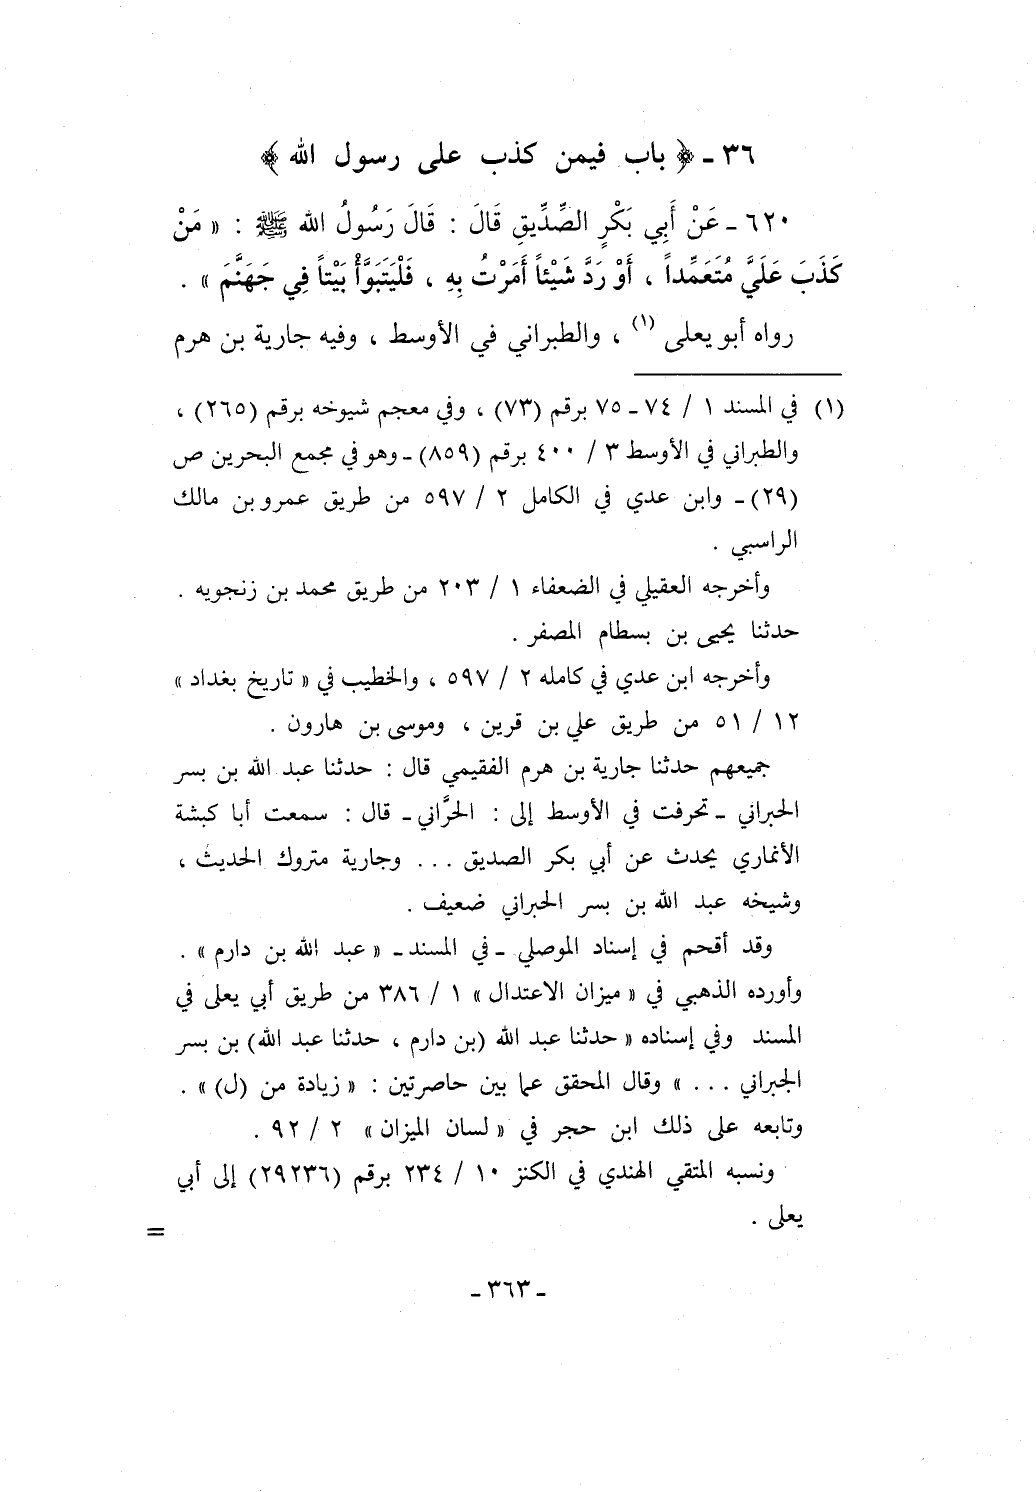 ٣٦ - ﴿ باب فيمن كذب على رسول الله ﴾
٦٢٠ - عَنْ أَبِي بَكْرٍ الصِّدِّيقِ قَالَ : قَالَ رَسُولُ الله ﷺ : « مَنْ
كَذَبَ عَلَيَّ مُتَعَمِّداً ، أَوْ رَدَّ شَيْئاً أَمَرْتُ بِهِ ، فَلْيَتَبَوَّأْ بَيْتاً فِي جَهَنَّمَ » .
رواه أبو يعلى (١) ، والطبراني في الأوسط ، وفيه جارية بن هرم
(١) في المسند ١ / ٧٤ - ٧٥ برقم (٧٣) ، وفي معجم شيوخه برقم (٢٦٥) ،
والطبراني في الأوسط ٣ / ٤٠٠ برقم (٨٥٩) - وهو في مجمع البحرين ص
(٢٩) - وابن عدي في الكامل ٢ / ٥٩٧ من طريق عمرو بن مالك
الراسبي .
وأخرجه العقيلي في الضعفاء ١ / ٢٠٣ من طريق محمد بن زنجويه .
حدثنا يحيى بن بسطام المصفر .
وأخرجه ابن عدي في كامله ٢ / ٥٩٧ ، والخطيب في « تاريخ بغداد »
١٢ / ٥١ من طريق علي بن قرين ، وموسى بن هارون .
جميعهم حدثنا جارية بن هرم الفقيمي قال : حدثنا عبد الله بن بسر
الحبراني - تحرفت في الأوسط إلى : الحرَّاني - قال : سمعت أبا كبشة
الأنماري يحدث عن أبي بكر الصديق . . . وجارية متروك الحديث ،
وشيخه عبد الله بن بسر الحبراني ضعيف .
وقد أقحم في إسناد الموصلي - في المسند - « عبد الله بن دارم » .
وأورده الذهبي في « ميزان الاعتدال » ١ / ٣٨٦ من طريق أبي يعلى في
المسند وفي إسناده « حدثنا عبد الله (بن دارم ، حدثنا عبد الله) بن بسر
الجبراني . . . » وقال المحقق عما بين حاصرتين : « زيادة من (ل) » .
وتابعه على ذلك ابن حجر في « لسان الميزان » ٢ / ٩٢ .
ونسبه المتقي الهندي في الكنز ١٠ / ٢٣٤ برقم (٢٩٢٣٦) إلى أبي
يعلى .
=
- ٣٦٣ -